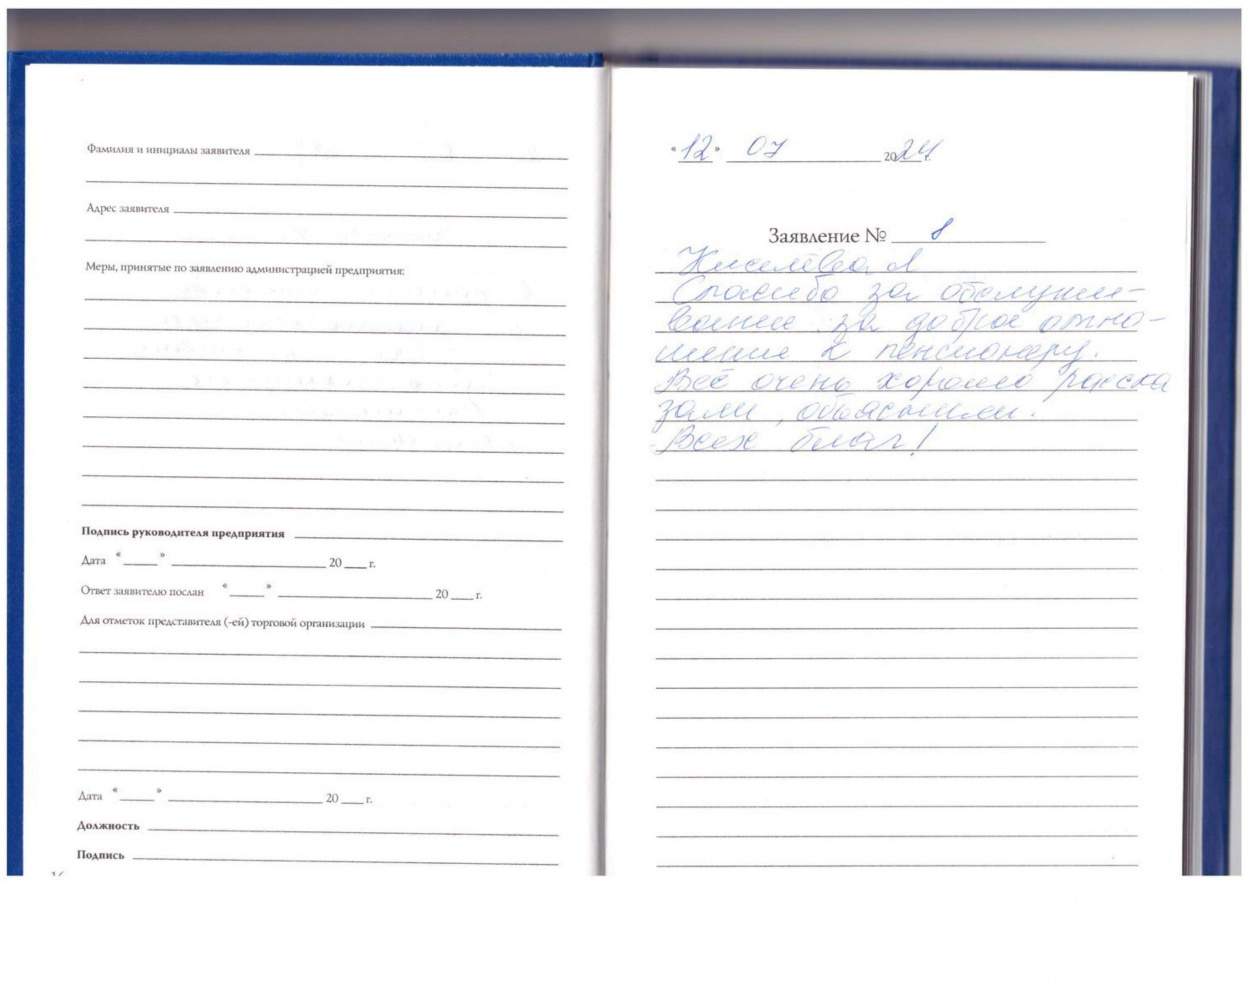 Фамилия и инициалы заявителя
Адрес заявителя
Меры, принятые по заявлению администрацией предприятия:
Подпись руководителя предприятия
Дата "____" ____________ 20 ___ г.
Ответ заявителю послан "____" ____________ 20 ___ г.
Для отметок представителя (-ей) торговой организации
Дата "____" ____________ 20 ___ г.
Должность
Подпись
"12" 07 2024 г.
Заявление № 8
Киселёва Л
Спасибо за обслужи-
вание за доброе отно-
шение к пенсионеру.
Всё очень хорошо расска
зали, объяснили.
Всех благ!